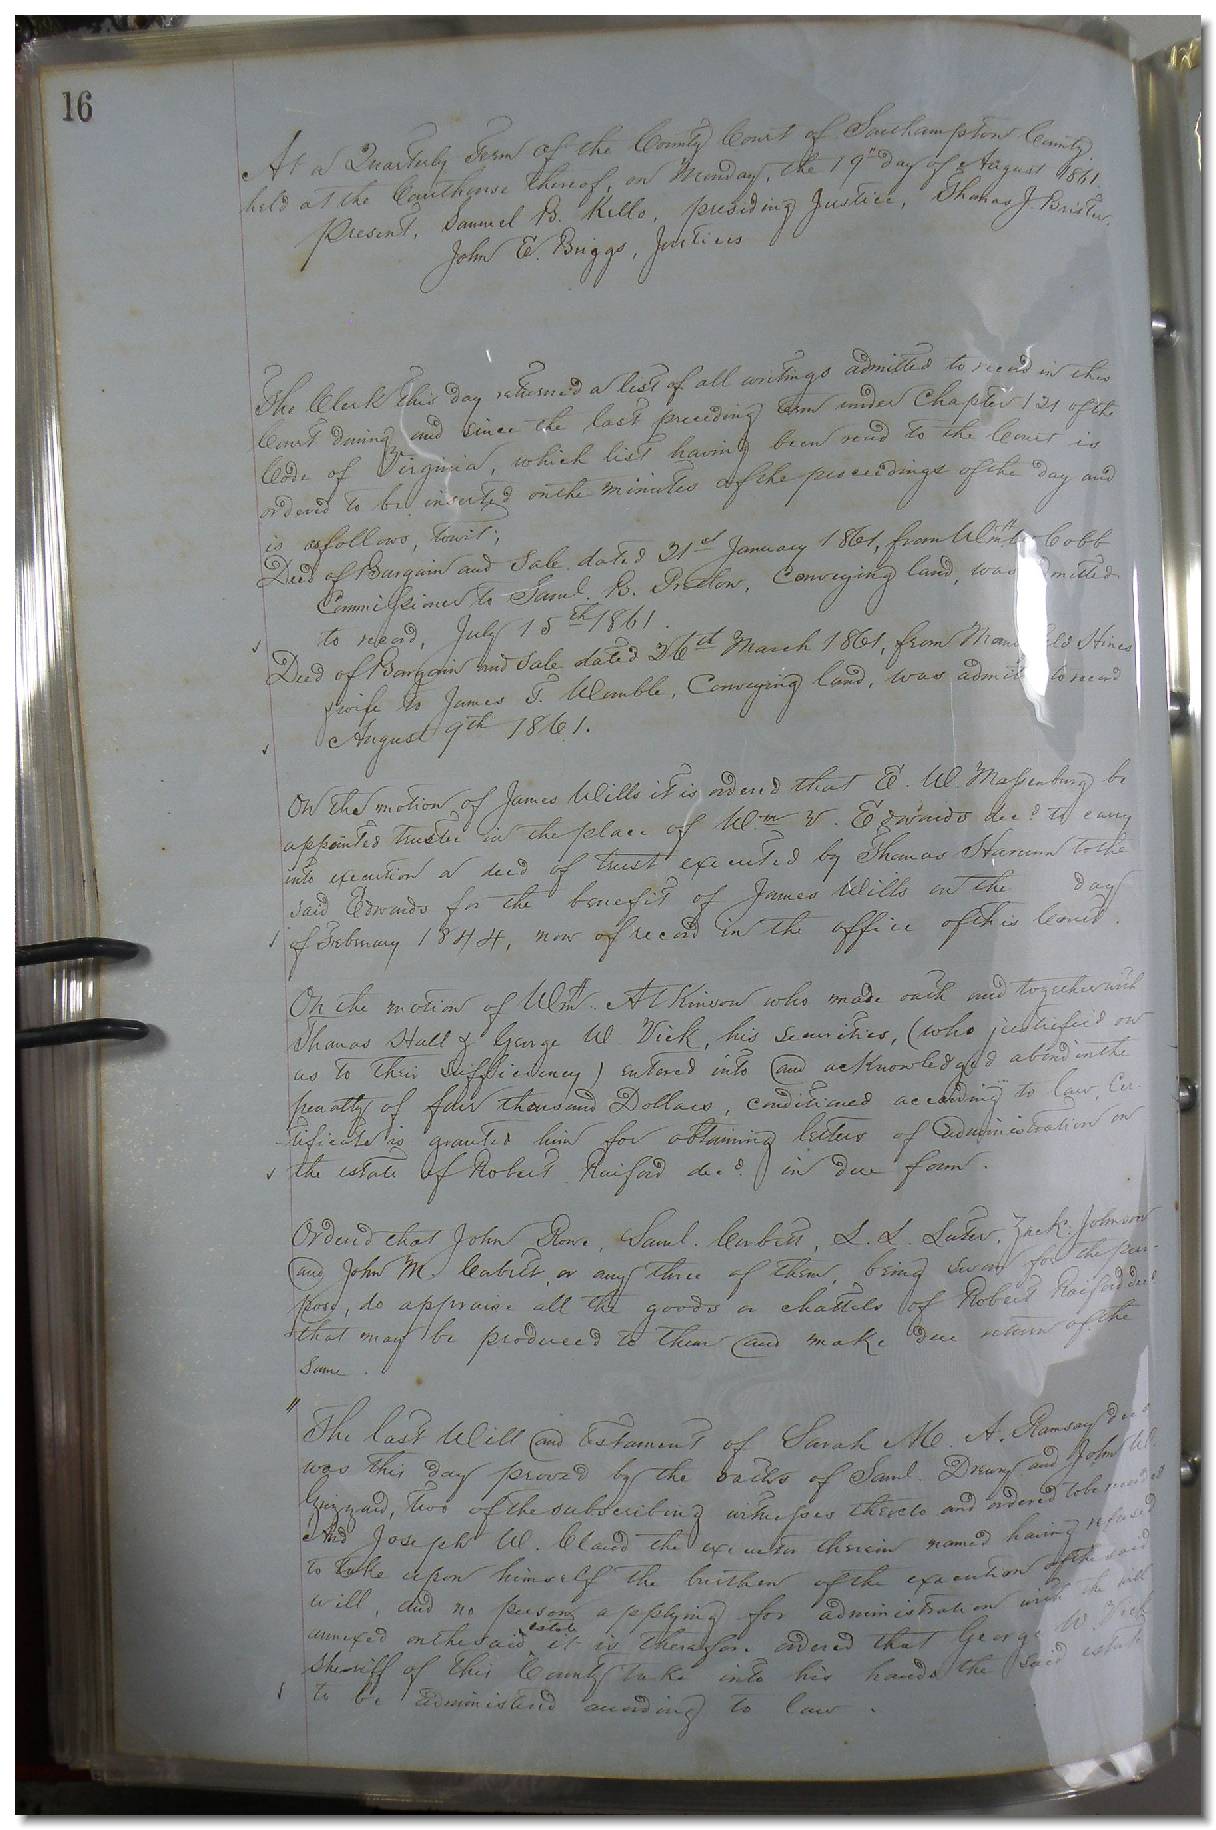 16
At a Quarterly Term of the County Court of Southampton County
held at the Courthouse thereof, on Monday, the 19th day of August 1861.
Present, Samuel B. Kello, presiding Justice, Thomas J. Brister,
John E. Briggs, Justices
The Clerk this day returned a list of all writings admitted to record in this
Court during and since the last preceding term under Chapter 121 of the
Code of Virginia, which list having been read to the Court is
ordered to be inserted on the minutes of the proceedings of the day and
is as follows, towit;
Deed of Bargain and Sale dated 21st January 1861, from Cobb
Commissioner to Saml. B. Preston, Conveying land, was admitted
to record, July 15th 1861.
Deed of Bargain and Sale dated 26th March 1861, from Hines
& wife to James T. Womble, Conveying land, was admit to record
August 9th 1861.
On the motion of James Wills it is ordered that E. W. Massenburg be
appointed trustee in the place of Wm V. Edwards decd to carry
into execution a deed of trust executed by Thomas to the
said Edwards for the benefit of James Wills on the day
of February 1844, now of record in the office of this Court.
On the motion of Wm. Atkinson who made oath and together with
Thomas Hall & George W. Vick, his securities, (who justified on
as to their sufficiency) entered into and acknowledged a bond in the
penalty of four thousand Dollars, conditioned according to law, Cer-
tificate is granted him for obtaining letters of administration on
the estate of Robert Raiford decd. in due form.
Ordered that John Rowe, Saml. Corbett, L. L. Luter, Zack. Johnson
and John M. or any three of them, being sworn for the pur-
pose, do appraise all the goods or chattels of Robert Raiford decd
that may be produced to them and make due return of the
same.
" The last Will and testament of Sarah M. A. Ramsay decd
was this day proved by the oaths of Saml. Drewry and John W.
Grizzard, two of the subscribing witnesses thereto and ordered to be recorded
And Joseph W. Claud the executor therein named having refused
to take upon himself the burthen of the execution of the said
will, and no person applying for administration with the will
annexed on the said estate it is therefore ordered that George W Vick
sheriff of this County take into his hands the said estate
to be administered according to law.